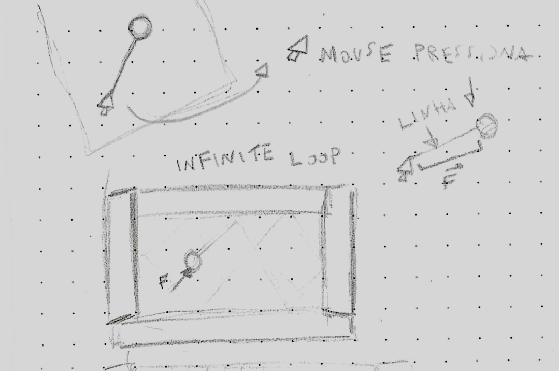 MOUSE PRESSIONA
LINHA
F
INFINITE LOOP
F